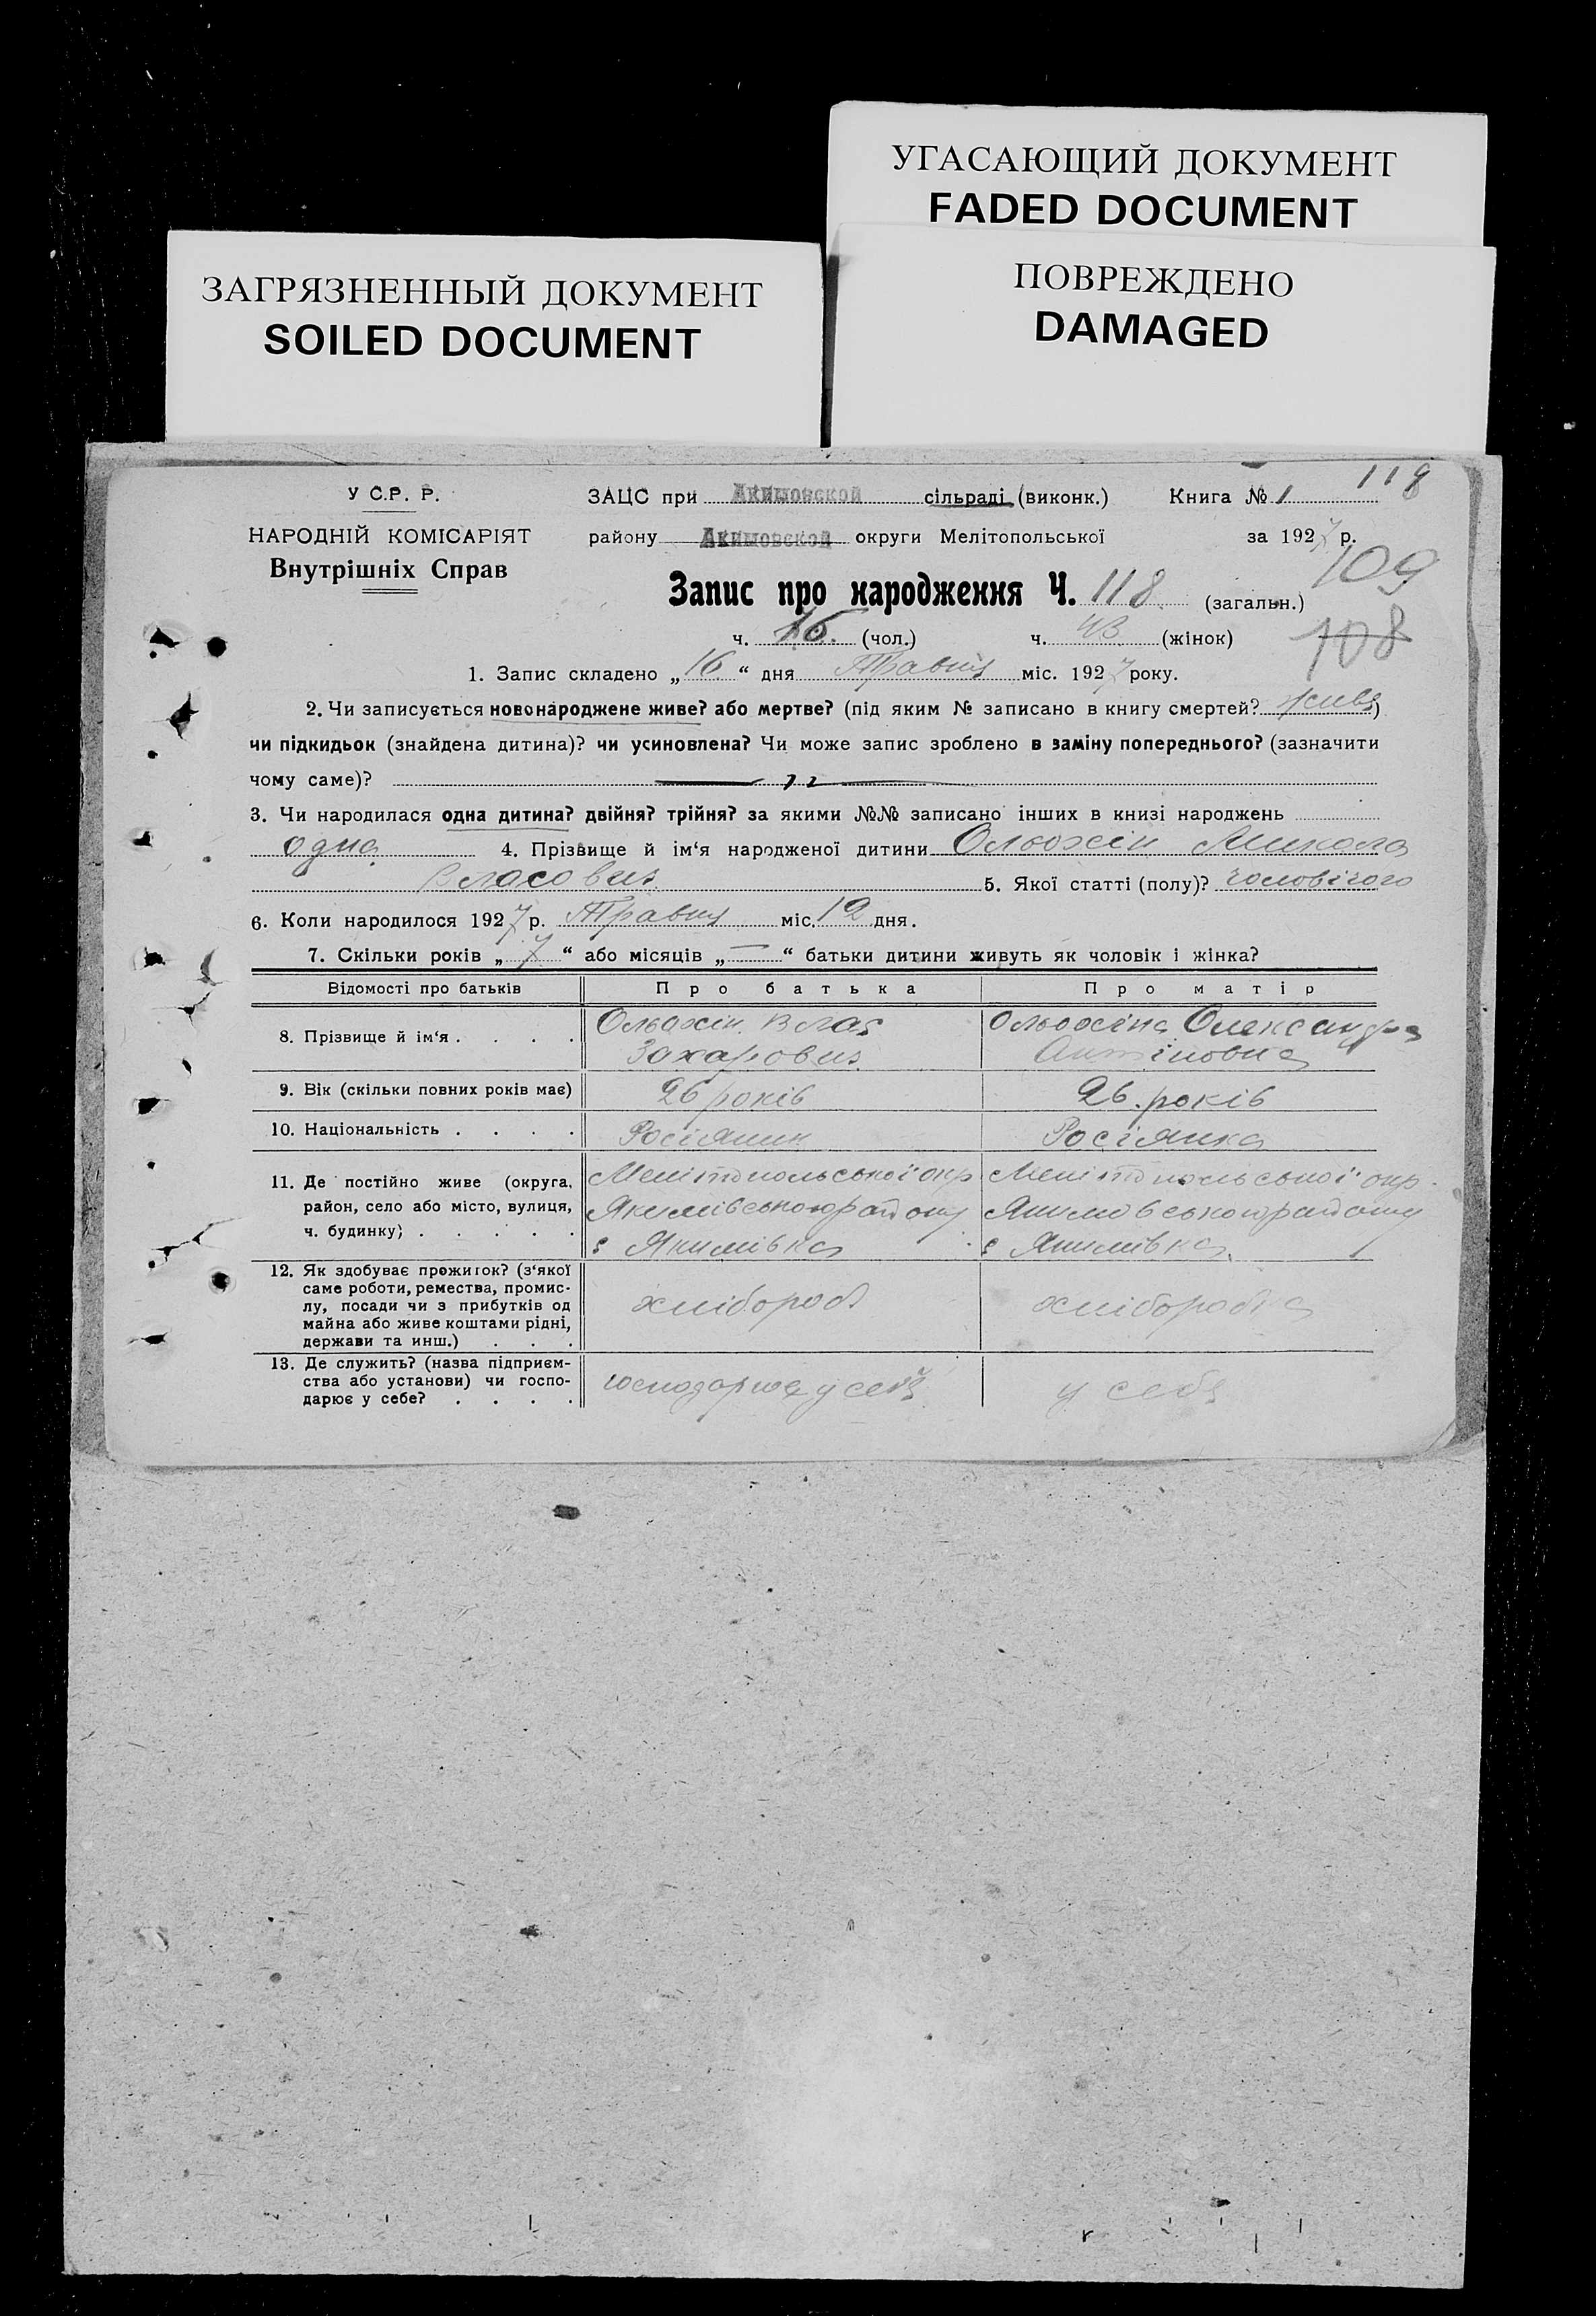 УГАСАЮЩИЙ ДОКУМЕНТ
FADED DOCUMENT
ЗАГРЯЗНЕННЫЙ ДОКУМЕНТ
SOILED DOCUMENT
ПОВРЕЖДЕНО
DAMAGED
118
У С.Р. Р.
ЗАЦС при Акимовской сільраді (виконк.) Книга № 1
НАРОДНІЙ КОМІСАРІЯТ
району Акимовской округи Мелітопольської за 1927 р.
Внутрішніх Справ
109
Запис про народження Ч. 118 (загальн.)
ч. (чол.) ч. (жінок) 108
1. Запис складено „16“ дня Травня міс. 1927 року.
2. Чи записується новонароджене живе? або мертве? (під яким № записано в книгу смертей? живе)
чи підкидьок (знайдена дитина)? чи усиновлена? Чи може запис зроблено в заміну попереднього? (зазначити
чому саме)?
3. Чи народилася одна дитина? двійня? трійня? за якими №№ записано інших в книзі народжень
одна 4. Прізвище й ім‘я народженої дитини Ольохін Микола
Власович 5. Якої статті (полу)? чоловічого
6. Коли народилося 1927 р. Травня міс. 12 дня.
7. Скільки років „7“ або місяців „—“ батьки дитини живуть як чоловік і жінка?
Відомості про батьків Про батька Про матір
8. Прізвище й ім‘я . . . . Ольохін Влас Ольохіна Олександра
Захарович Антіповна
9. Вік (скільки повних років має) 26 років 26 років
10. Національність . . . . Росіянин Росіянка
11. Де постійно живе (округа, Мелітопольської окр Мелітопольської окр.
район, село або місто, вулиця, Якимівського району Якимовського району
ч. будинку) . . . . . с Якимівка с Якимівка
12. Як здобуває прожиток? (з‘якої
саме роботи, ремества, промис-
лу, посади чи з прибутків од хлібороб хлібороба
майна або живе коштами рідні,
держави та инш.) . . .
13. Де служить? (назва підприєм-
ства або установи) чи госпо- господарює у себе у себе
дарює у себе? . . . .